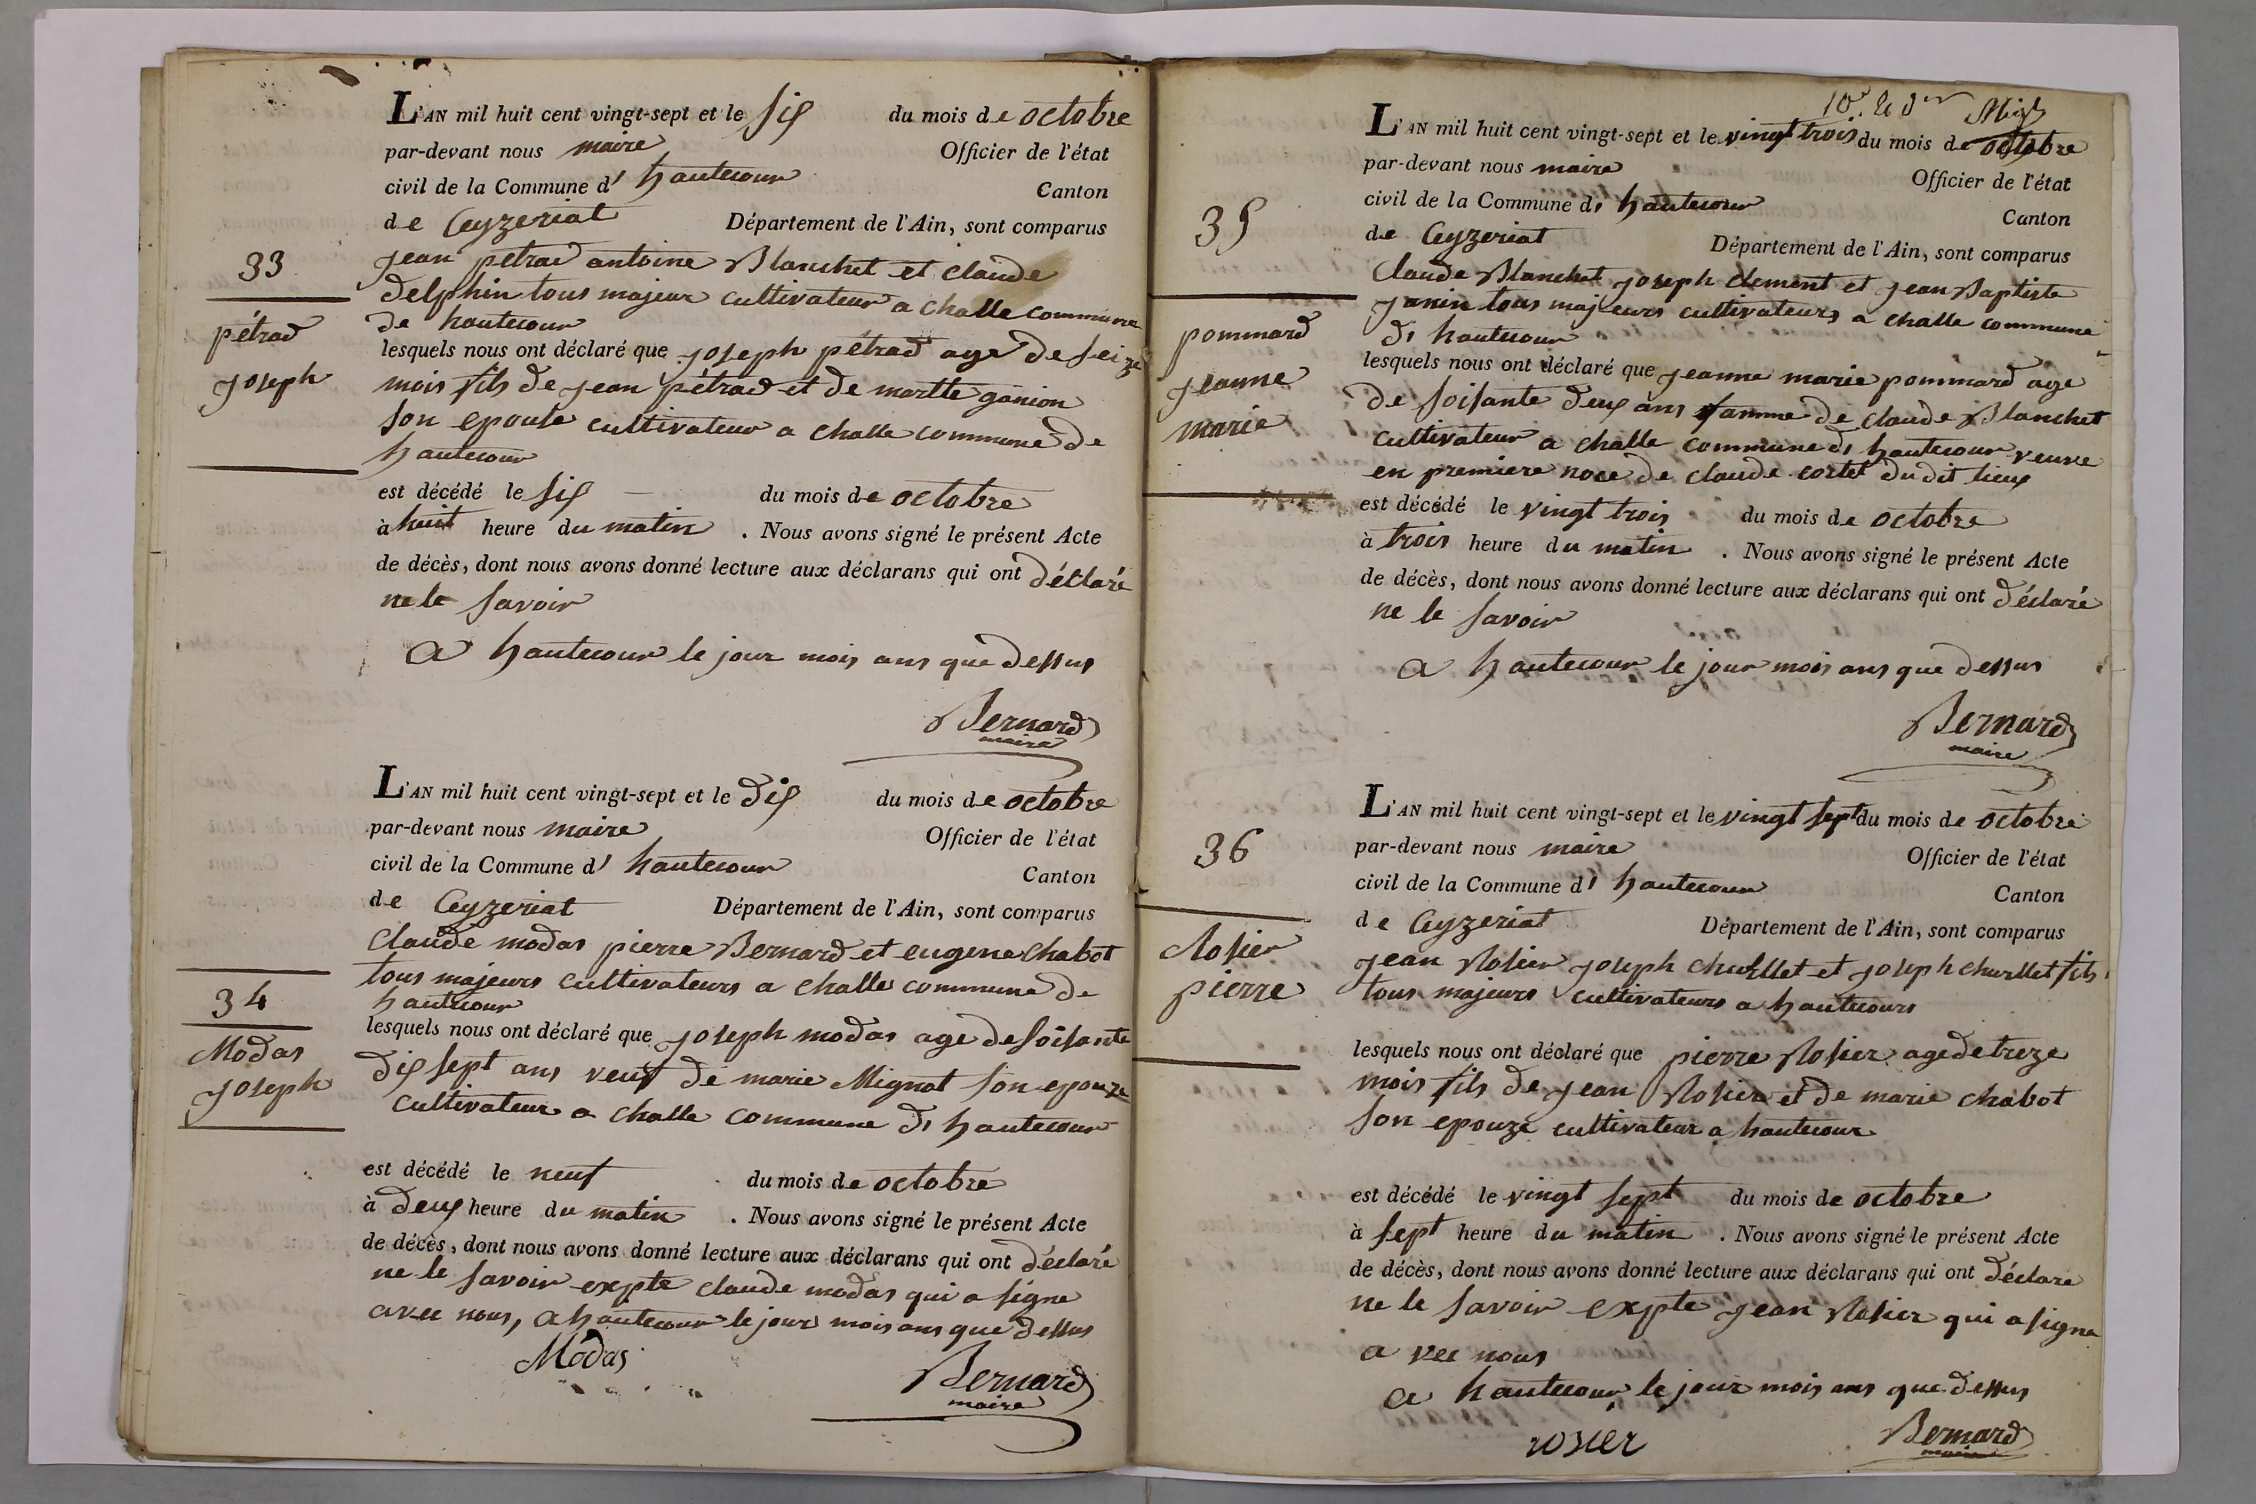 L'AN mil huit cent vingt-sept et le six du mois de octobre
par-devant nous maire Officier de l'état
civil de la Commune d' hautecour Canton
de Ceyzeriat Département de l'Ain, sont comparus
33
pétrad
joseph
jean pétrad antoine Blanchet et claude
delphin tous majeur cultivateur a challe commune
de hautecour
lesquels nous ont déclaré que joseph pétrad age de seize
mois fils de jean pétrad et de martte ganion
son epouse cultivateur a challe commune de
hautecour
est décédé le six du mois de octobre
à huit heure du matin . Nous avons signé le présent Acte
de décès, dont nous avons donné lecture aux déclarans qui ont déclaré
ne le savoir
a hautecour le jour mois ans que dessus
Bernard
maire
L'AN mil huit cent vingt-sept et le dix du mois de octobre
par-devant nous maire Officier de l'état
civil de la Commune d' hautecour Canton
de Ceyzeriat Département de l'Ain, sont comparus
34
Modas
joseph
claude modas pierre Bernard et eugene chabot
tous majeurs cultivateurs a challe commune de
hautecour
lesquels nous ont déclaré que joseph modas age de soisante
dix sept ans veuf de marie Mignot son epouze
cultivateur a challe commune d, hautecour
est décédé le neuf du mois de octobre
à deux heure du matin . Nous avons signé le présent Acte
de décès, dont nous avons donné lecture aux déclarans qui ont déclaré
ne le savoir expte claude modas qui a signe
avec nous, a hautecour le jour mois ans que dessus
Modas
Bernard
maire
10.
L'AN mil huit cent vingt-sept et le vingt trois du mois de octobre
par-devant nous maire Officier de l'état
civil de la Commune d, hautecour Canton
de Ceyzeriat Département de l'Ain, sont comparus
35
pommard
jeanne
marie
Claude Blanchet joseph clement et jean Baptiste
janin tous majeurs cultivateurs a challe commune
d, hautecour
lesquels nous ont déclaré que jeanne marie pommard age
de soisante deux ans famme de claude Blanchet
cultivateur a challe commune d, hautecour veuve
en premiere noce de claude cortet dudit lieux
est décédé le vingt trois du mois de octobre
à trois heure du matin . Nous avons signé le présent Acte
de décès, dont nous avons donné lecture aux déclarans qui ont déclaré
ne le savoir
a hautecour le jour mois ans que dessus
Bernard
maire
L'AN mil huit cent vingt-sept et le vingt sept du mois de octobre
par-devant nous maire Officier de l'état
civil de la Commune d, hautecour Canton
de Ceyzeriat Département de l'Ain, sont comparus
36
Rosier
pierre
jean Rosier joseph chuillet et joseph chuillet fils
tous majeurs cultivateurs a hautecours
lesquels nous ont déclaré que pierre Rosier age de treze
mois fils de jean Rosier et de marie chabot
son epouze cultivateur a hautecour
est décédé le vingt sept du mois de octobre
à sept heure du matin . Nous avons signé le présent Acte
de décès, dont nous avons donné lecture aux déclarans qui ont déclare
ne le savoir expte jean Rosier qui a signe
a vec nous
a hautecour le jour mois ans que dessus
rosier
Bernard
maire